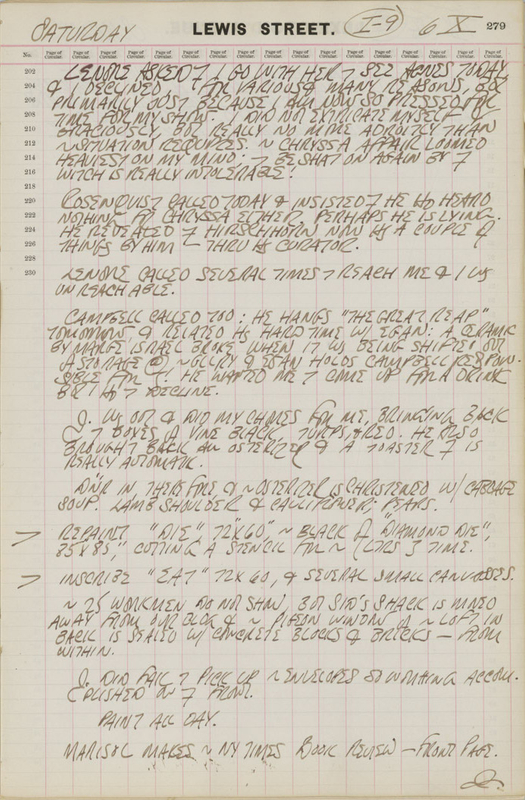 SATURDAY LEWIS STREET. I-9 6 X 279
No. Page of Circular. Page of Circular. Page of Circular. Page of Circular. Page of Circular. Page of Circular. Page of Circular. Page of Circular. Page of Circular. Page of Circular. Page of Circular. Page of Circular. Page of Circular. Page of Circular. Page of Circular. Page of Circular.
202 LENORE ASKED I GO WITH HER SEE AGNES TODAY
204 & I DECLINED FOR VARIOUS & MANY REASONS, BUT
206 PRIMARILY JUST BECAUSE I AM NOW SO PRESSED FOR
208 TIME FOR MY SHOW. I DID NOT EXTRICATE MYSELF
210 GRACIOUSLY, BUT REALLY NO MORE ADROITLY THAN
212 ~ SITUATION REQUIRES. ~ CHRYSSA AFFAIR LOOMED
214 HEAVIEST ON MY MIND: BE SHAT ON AGAIN BY
216 WITCH IS REALLY INTOLERABLE!
218
220 ROSENQUIST CALLED TODAY & INSISTED HE HD HEARD
222 NOTHING FR CHRYSSA EITHER. PERHAPS HE IS LYING.
224 HE REVEALED HIRSCHHORN NOW HS A COUPLE
226 THINGS BY HIM — THRU HS CURATOR.
228
230 LENORE CALLED SEVERAL TIMES REACH ME & I WS
UNREACHABLE.
CAMPBELL CALLED TOO: HE HANGS "THE GREAT REAP"
TOMORROW, & RELATED HS HARD TIME W/ EGAN: A CERAMIC
BY MARGE ISRAEL BROKE WHEN IT WS BEING SHIFTED OUT
STORAGE @ & EGAN HOLDS CAMPBELL RESPON-
SIBLE FOR IT! HE WANTED ME COME UP FOR A DRINK
BUT I HD DECLINE.
J. WS OUT & DID MY CHORES FOR ME, BRINGING BACK
BOXES VINE BLACK, TURPS, & RED. HE ALSO
BROUGHT BACK AN OSTERIZER & A TOASTER IS
REALLY AUTOMATIC.
DINR IN THEREFORE & ~ OSTERIZER IS CHRISTENED W/ CABBAGE
SOUP. LAMB SHOULDER & CAULIFLOWER. PEARS.
> REPAINT "DIE" 72"X60", ~ BLACK "DIAMOND DIE",
85X85," CUTTING A STENCIL FOR ~ LTRS TIME.
> INSCRIBE "EAT" 72X60, & SEVERAL SMALL CANVASSES.
~ 25 WORKMEN DO NOT SHOW, BUT SID'S SHACK IS MOVED
AWAY FROM OUR BLDG & ~ PIGEON WINDOW ~ LOFT IN
BACK IS SEALED W/ CONCRETE BLOCKS & BRICKS — FROM
WITHIN.
J. DID FAIL PICK UP ~ ENVELOPES SO NOTHING ACCOM-
PLISHED ON FRONT.
PAINT ALL DAY.
MARISOL MAKES ~ NY TIMES BOOK REVIEW — FRONT PAGE.